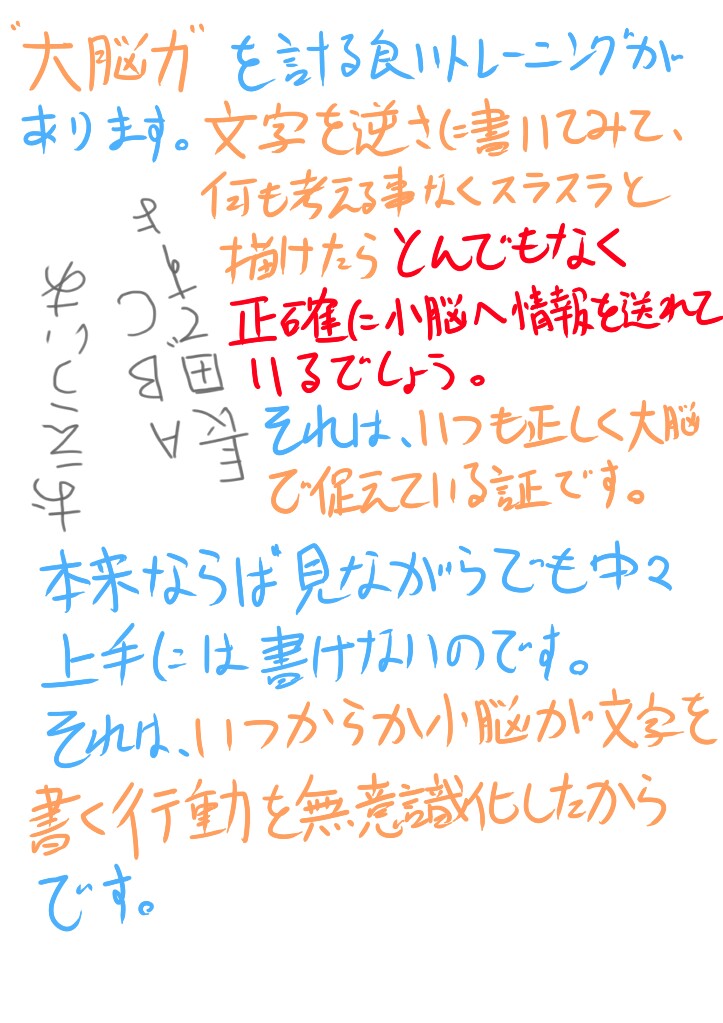 “大脳力”を計る良いトレーニングが
あります。文字を逆さに書いてみて、
何も考える事なくスラスラと
描けたらとんでもなく
正確に小脳へ情報を送れて
いるでしょう。
それは、いつも正しく大脳
で促えている証です。
あいうえお
ABC
長田です
本来ならば見ながらでも中々
上手には書けないのです。
それは、いつからか小脳が文字を
書く行動を無意識化したから
です。